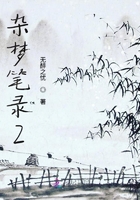 杂梦笔录2
无辞之忧
◎
著